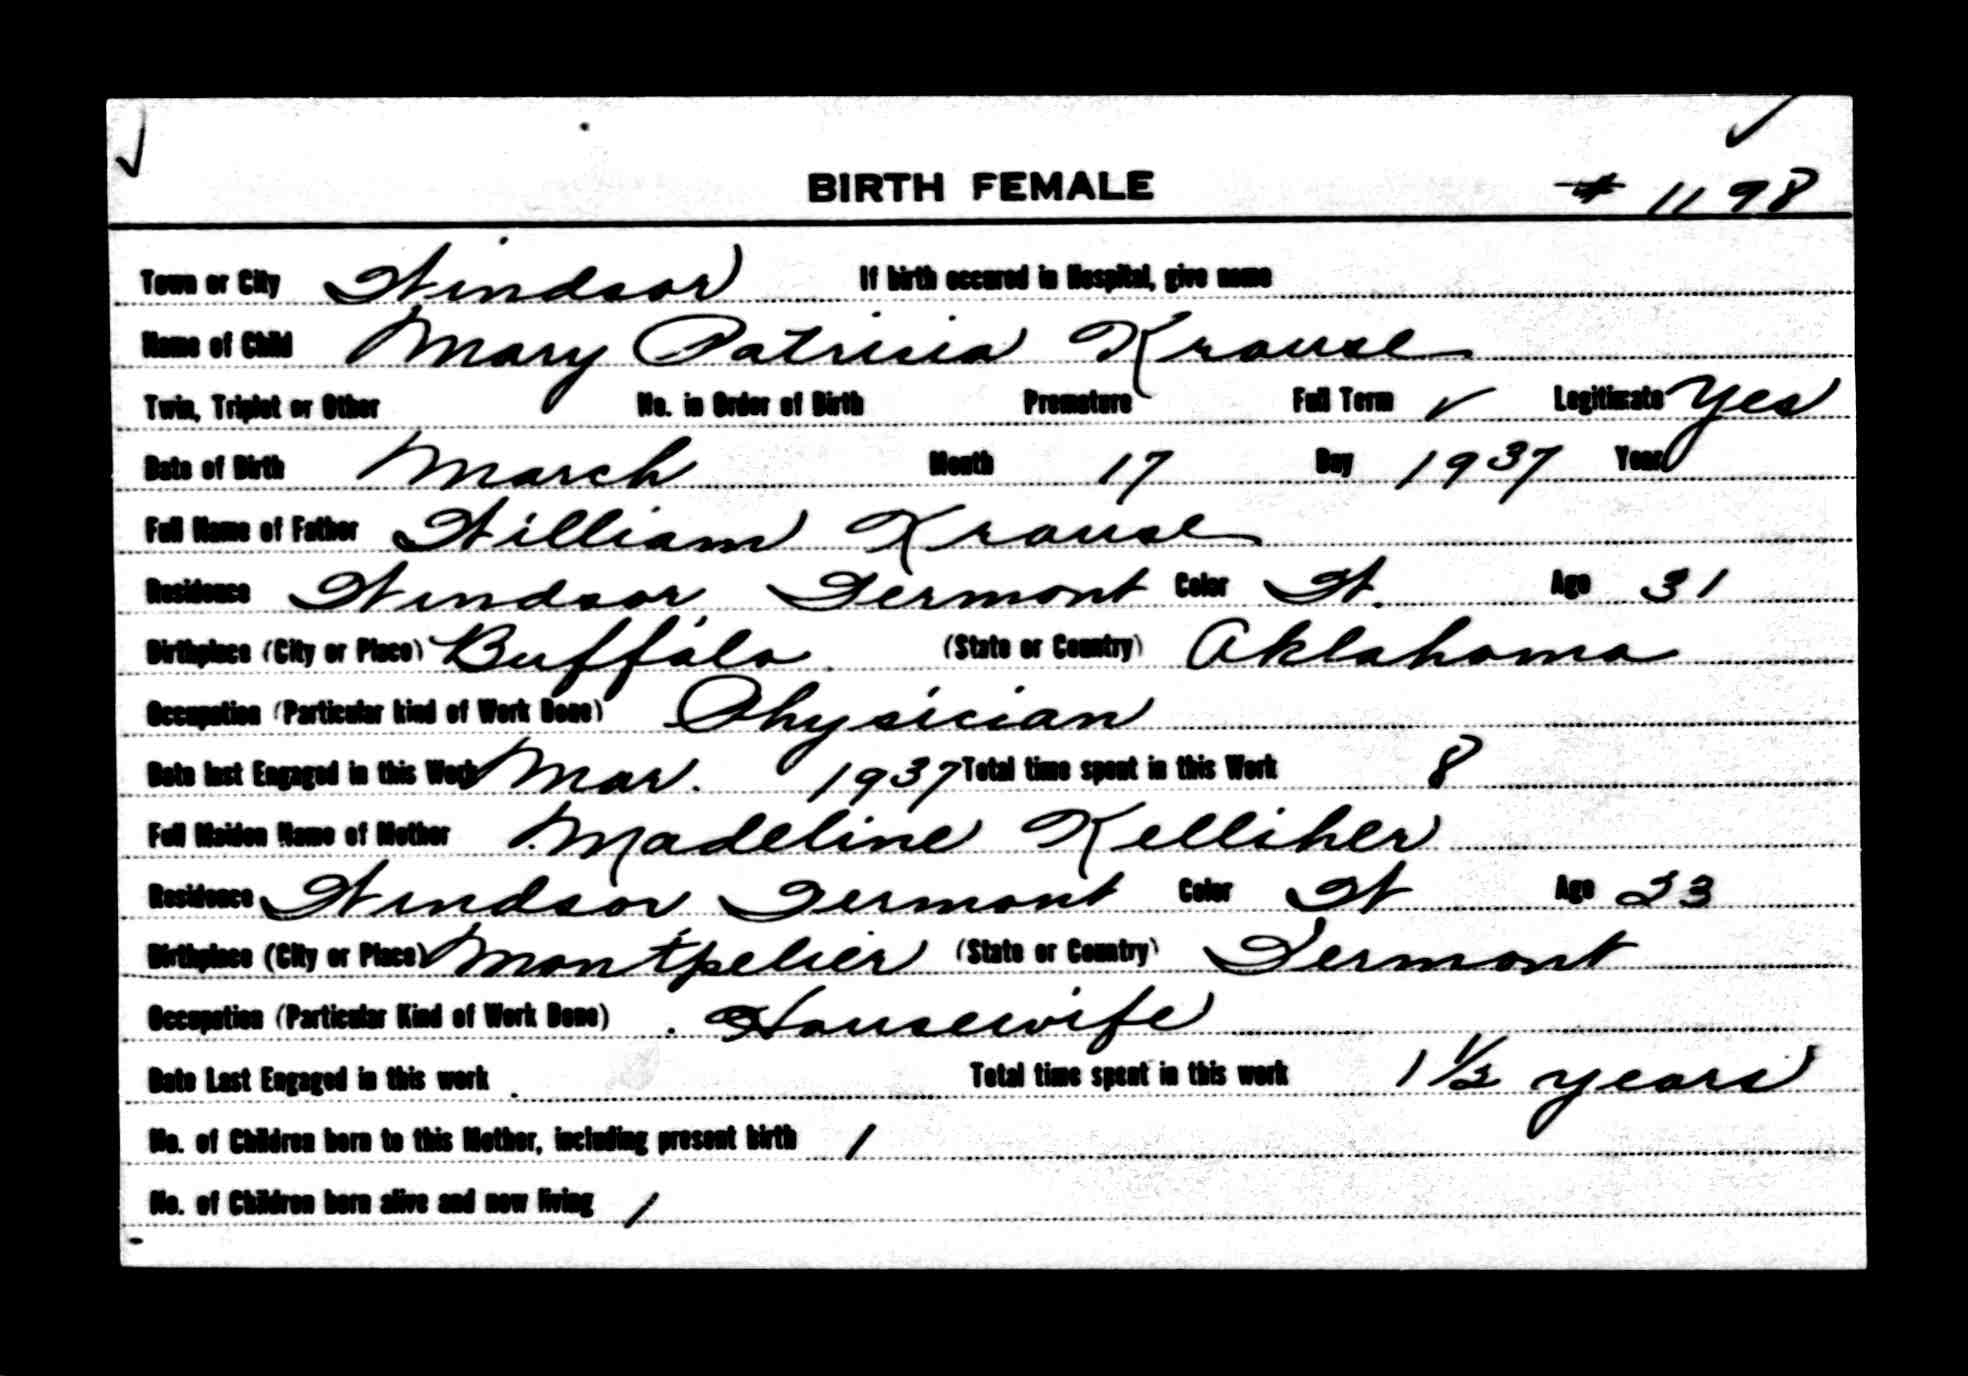 BIRTH FEMALE # 1198
Town or City Windsor If birth occured in Hospital, give name
Name of Child Mary Patricia Krause
Twin, Triplet or Other No. in Order of Birth Premature Full Term ✓ Legitimate Yes
Date of Birth March Month 17 Day 1937 Year
Full Name of Father William Krause
Residence Windsor Vermont Color W. Age 31
Birthplace (City or Place) Buffalo (State or Country) Oklahoma
Occupation (Particular kind of Work Done) Physician
Date last Engaged in this Work Mar. 1937 Total time spent in this Work 8
Full Maiden Name of Mother Madeline Kelliher
Residence Windsor Vermont Color W Age 23
Birthplace (City or Place) Montpelier (State or Country) Vermont
Occupation (Particular Kind of Work Done) Housewife
Date Last Engaged in this work Total time spent in this work 1 1/2 years
No. of Children born to this Mother, including present birth 1
No. of Children born alive and now living 1